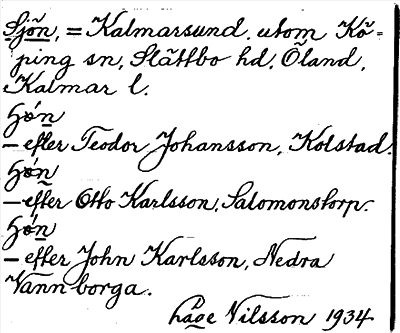 Sjön, = Kalmarsund, utom Kö-
ping sn, Slättbo hd, Öland,
Kalmar l.
– efter Teodor Johansson, Kolstad.
– efter Otto Karlsson, Salomonstorp.
– efter John Karlsson, Nedra
Vannborga.
Nilsson 1934